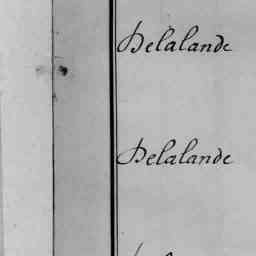 Delalande
Delalande